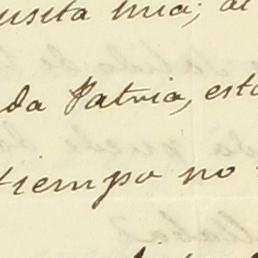 mia; al
da Patria, est
tiempo no